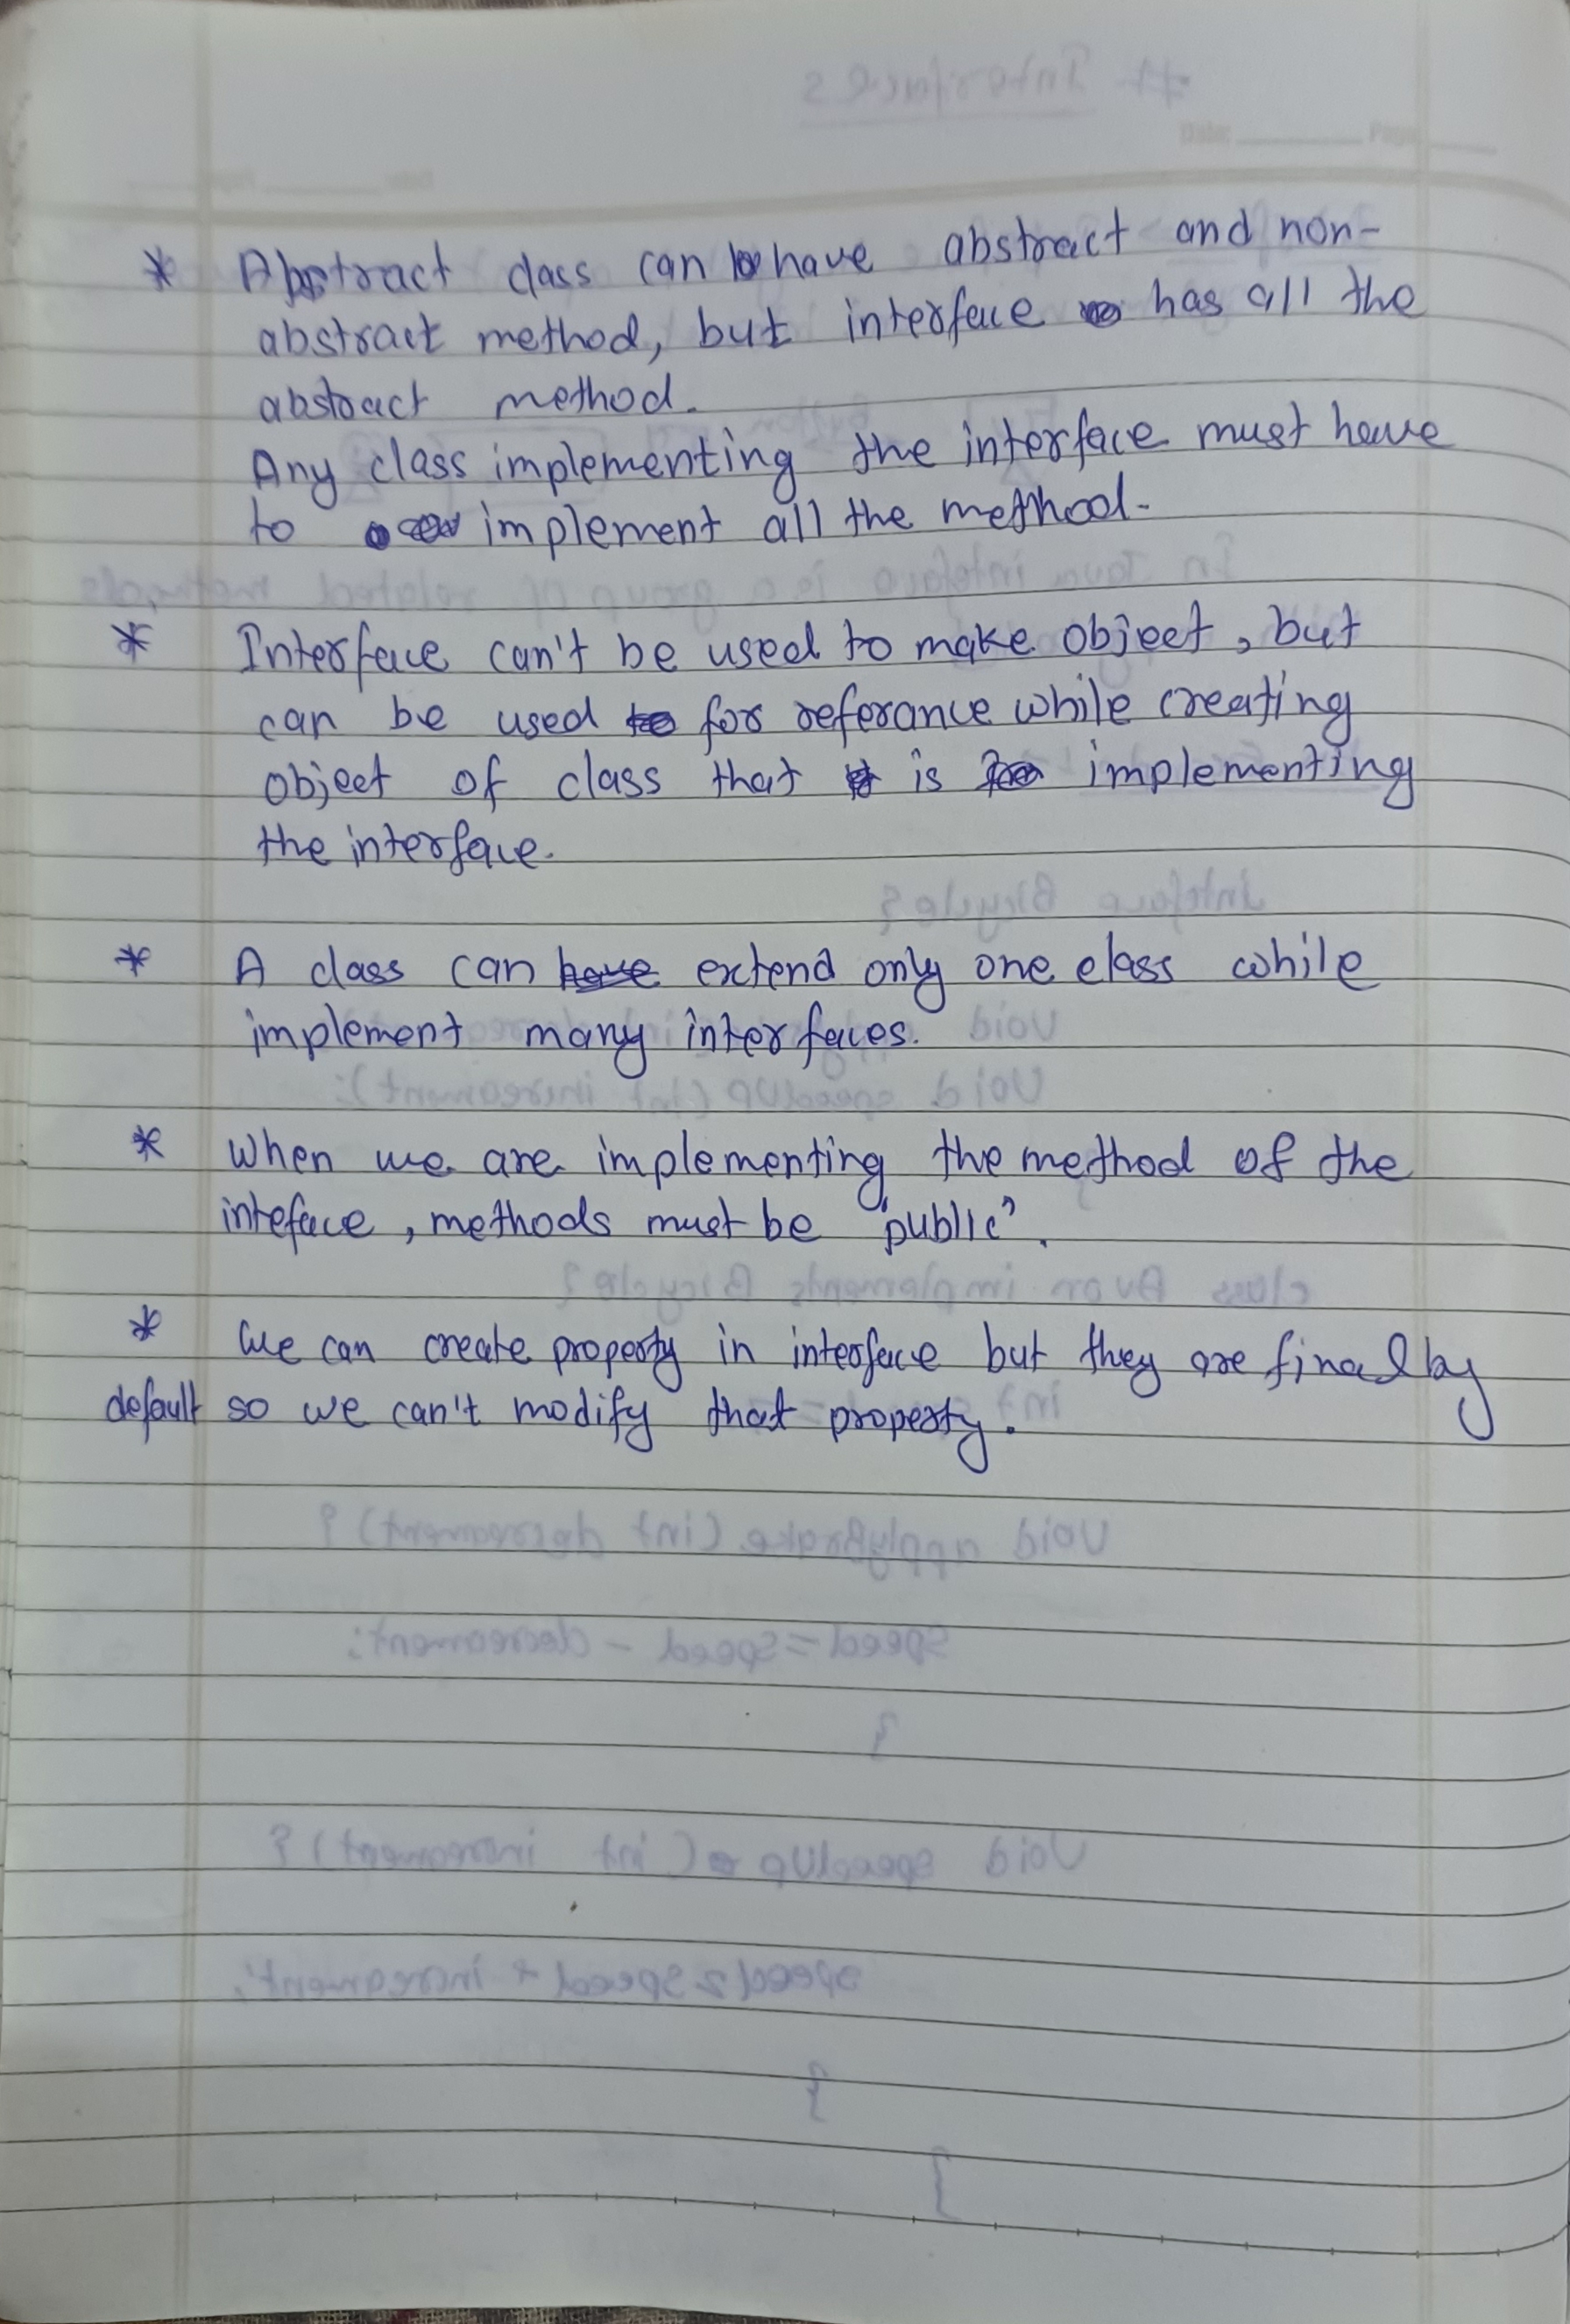 * Abstract class can have abstract and non-
abstract method, but interface has all the
abstract method.
Any class implementing the interface must have
to implement all the method.
* Interface can't be used to make object, but
can be used for referance while creating
object of class that is implementing
the interface.
* A class can extend only one class while
implement many interfaces.
* When we are implementing the method of the
inteface, methods must be "public".
* We can create property in interface but they are final by
default so we can't modify that property.